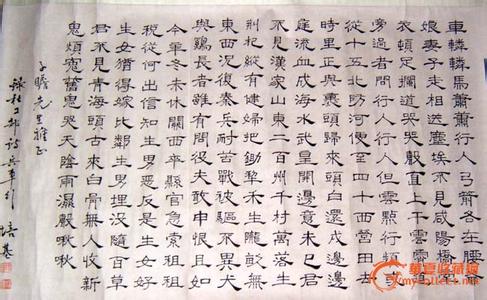 車轔轔馬蕭蕭行人弓箭各在腰爺
娘妻子走相送塵埃不見咸陽橋牽
衣頓足攔道哭哭聲直上干雲霄道
旁過者問行人行人但雲點行頻或
從十五北防河便至四十西營田去
時里正與裹頭歸來頭白還戍邊邊
庭流血成海水武皇開邊意未已君
不見漢家山東二百州千村萬落生
荊杞縱有健婦把鋤犁禾生隴畝無
東西況復秦兵耐苦戰被驅不異犬
與雞長者雖有問役夫敢申恨且如
今年冬未休關西卒縣官急索租租
稅從何出信知生男惡反是生女好
生女猶得嫁比鄰生男埋沒隨百草
君不見青海頭古來白骨無人收新
鬼煩冤舊鬼哭天陰雨濕聲啾啾
子瞻先生雅正
錄杜工部詩兵車行 培基
華夏收藏網